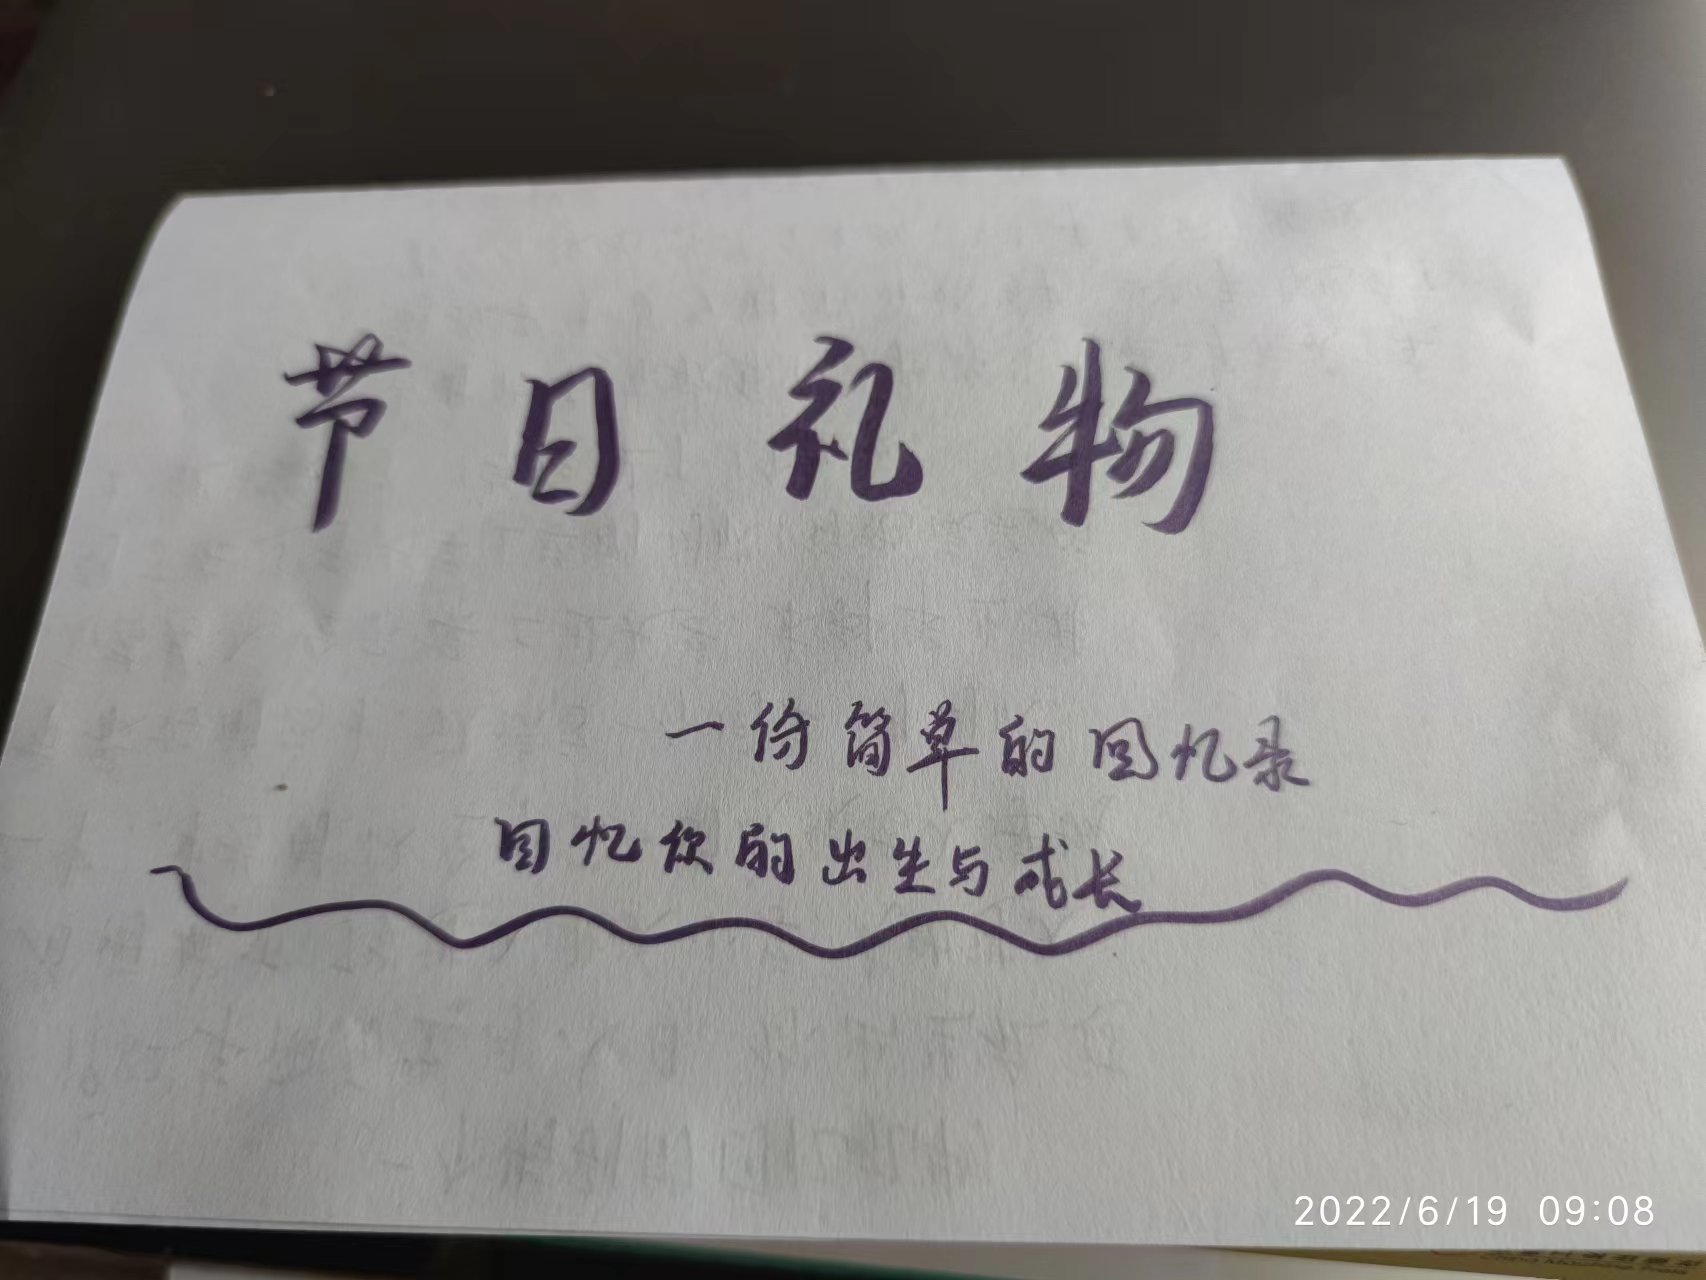 节日礼物
一份简单的回忆录
回忆你的出生与成长
2022/6/19 09:08